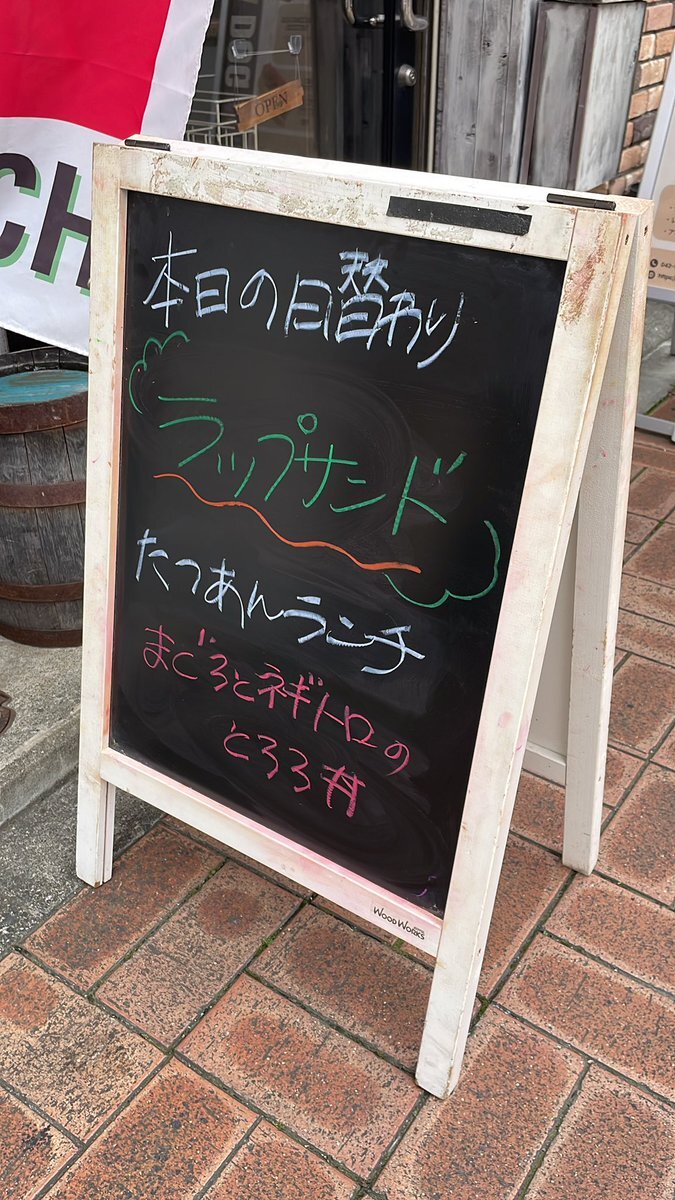 OPEN
CH
本日の日替わり
ラップサンド
たつあんランチ
まぐろとネギトロの
とろろ丼
WOODWORKS